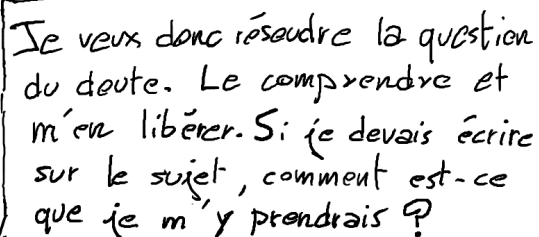 Je veux donc résoudre la question
du doute. Le comprendre et
m'en libérer. Si je devais écrire
sur le sujet, comment est-ce
que je m'y prendrais ?